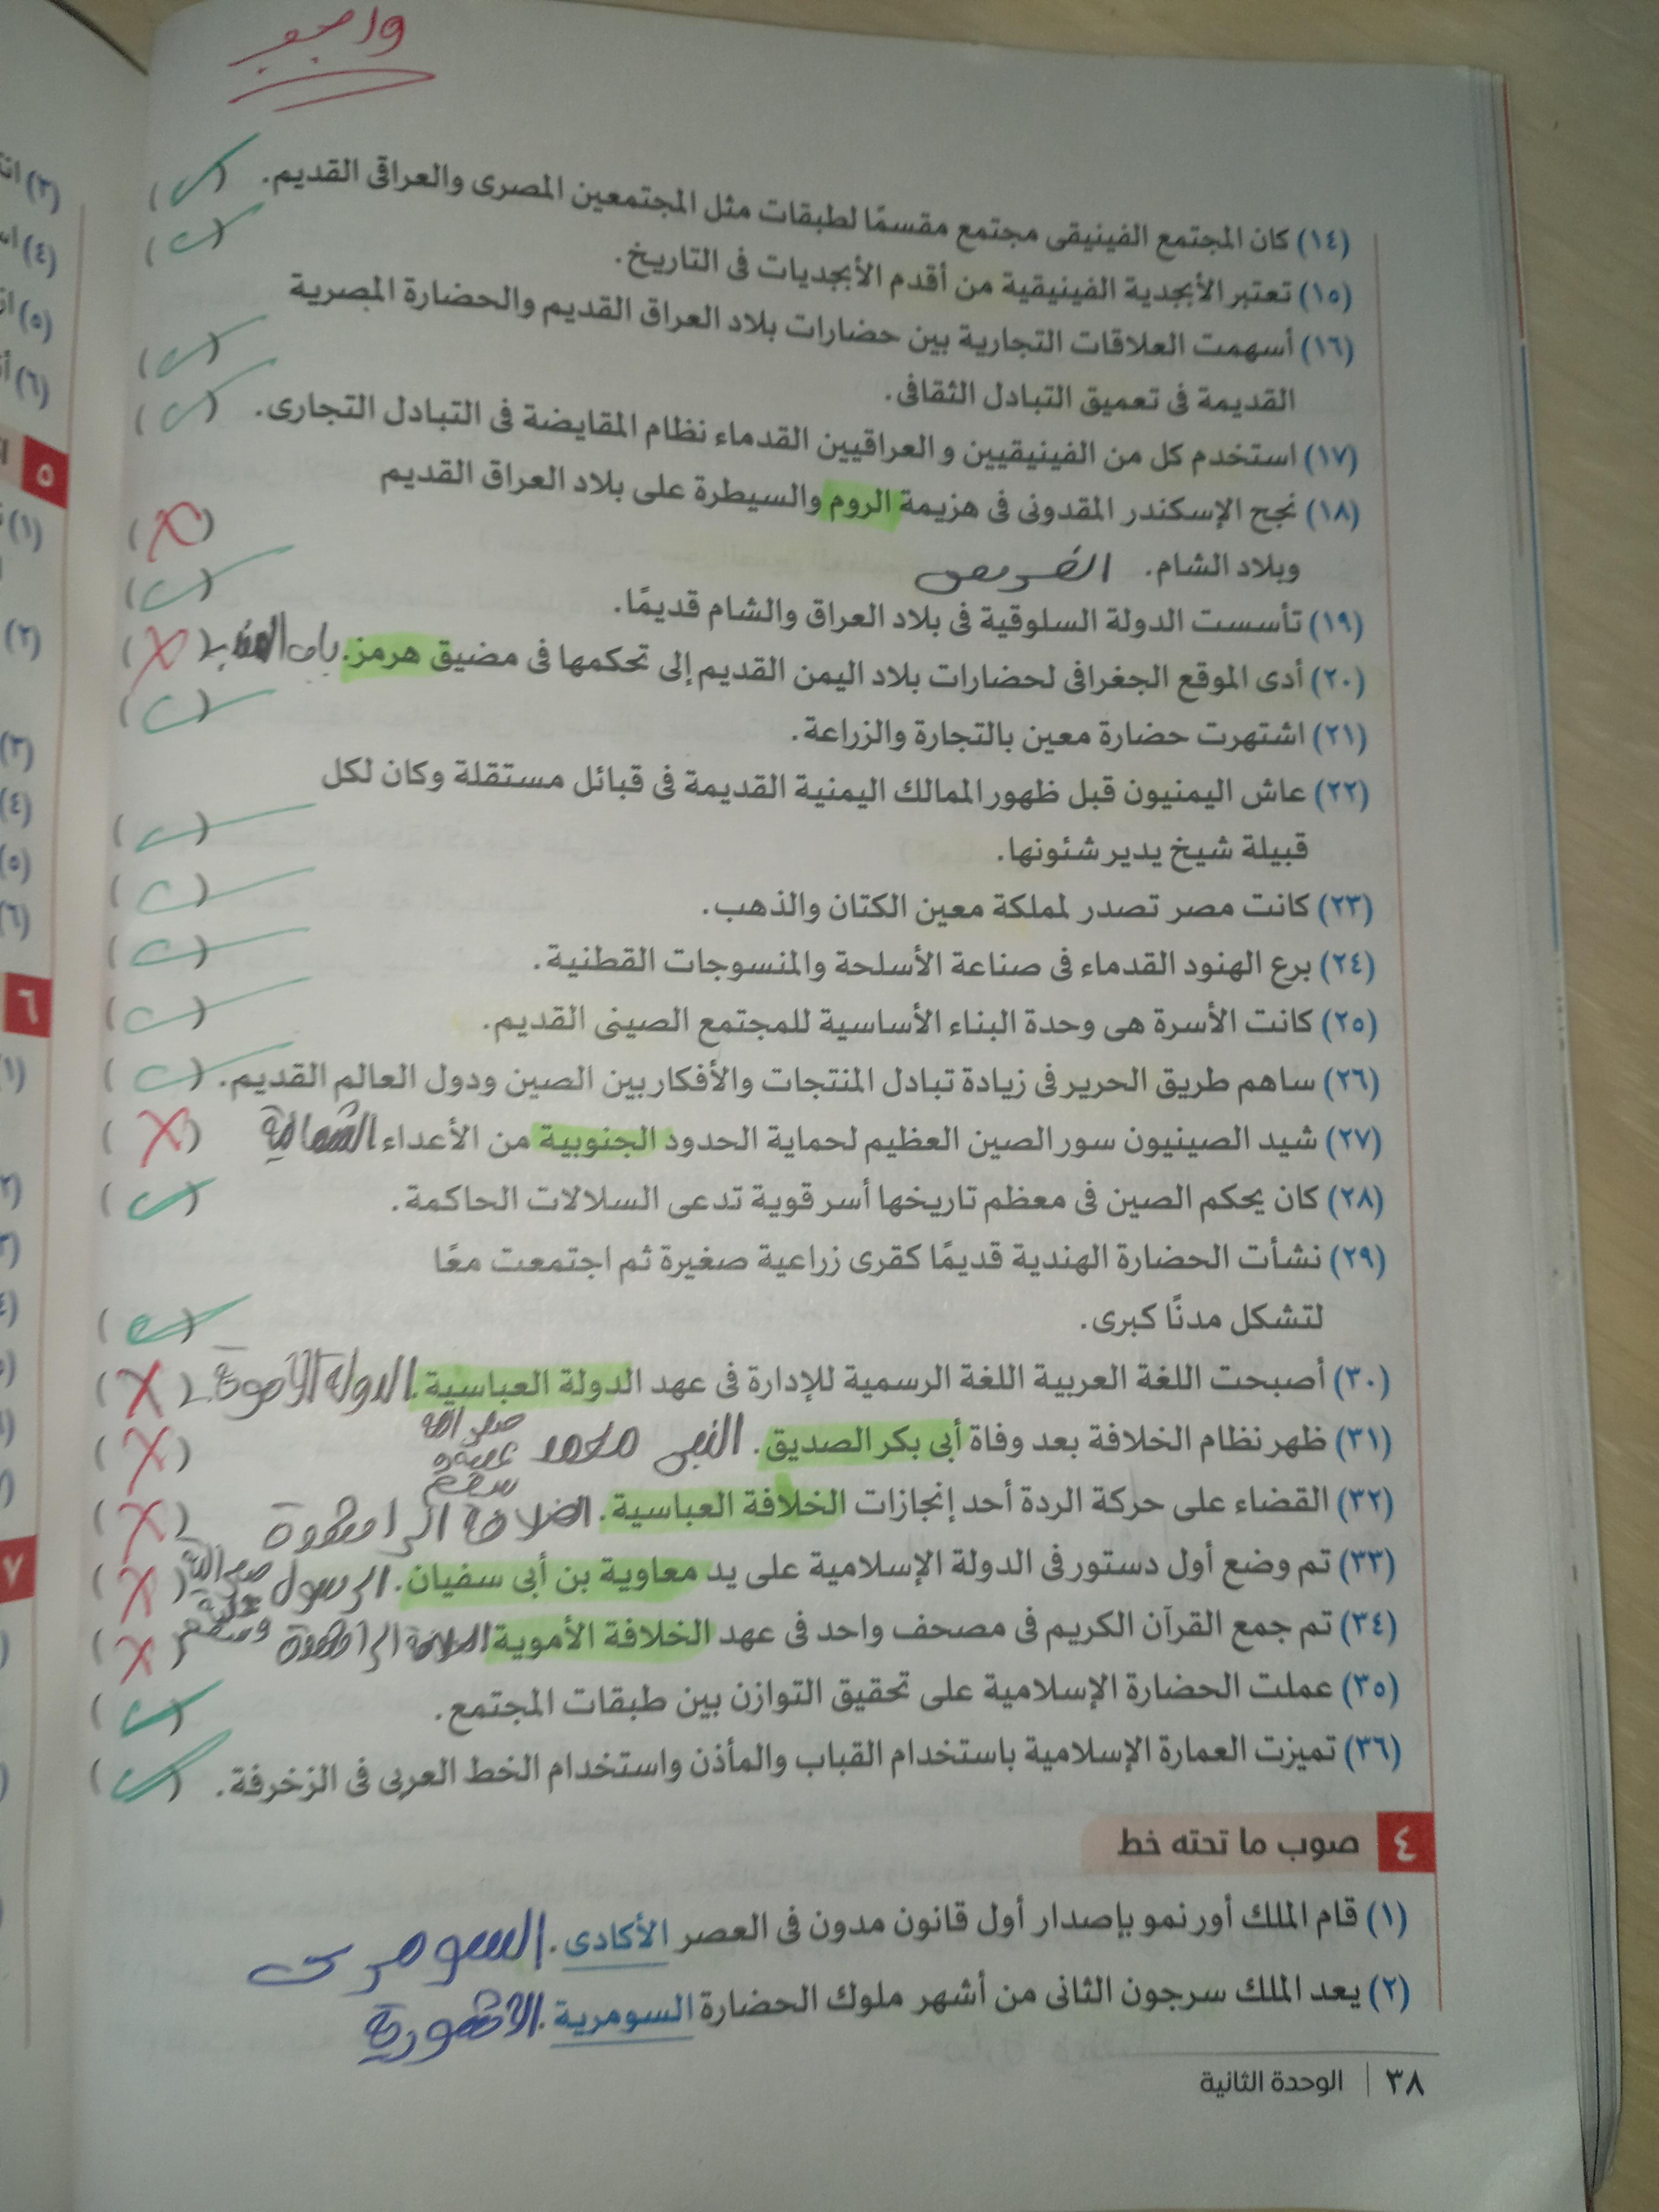 واجب
(١٤) كان المجتمع الفينيقى مجتمع مقسمًا لطبقات مثل المجتمعين المصرى والعراقى القديم. (✓)
(١٥) تعتبر الأبجدية الفينيقية من أقدم الأبجديات فى التاريخ. (✓)
(١٦) أسهمت العلاقات التجارية بين حضارات بلاد العراق القديم والحضارة المصرية
القديمة فى تعميق التبادل الثقافى. (✓)
(١٧) استخدم كل من الفينيقيين و العراقيين القدماء نظام المقايضة فى التبادل التجارى. (✓)
(١٨) نجح الإسكندر المقدونى فى هزيمة الروم والسيطرة على بلاد العراق القديم
وبلاد الشام. (✗)
(١٩) تأسست الدولة السلوقية فى بلاد العراق والشام قديمًا. (✓)
(٢٠) أدى الموقع الجغرافى لحضارات بلاد اليمن القديم إلى تحكمها فى مضيق هرمز. باب المندب (✗)
(٢١) اشتهرت حضارة معين بالتجارة والزراعة. (✓)
(٢٢) عاش اليمنيون قبل ظهور الممالك اليمنية القديمة فى قبائل مستقلة وكان لكل
قبيلة شيخ يدير شئونها. (✓)
(٢٣) كانت مصر تصدر لمملكة معين الكتان والذهب. (✓)
(٢٤) برع الهنود القدماء فى صناعة الأسلحة والمنسوجات القطنية. (✓)
(٢٥) كانت الأسرة هى وحدة البناء الأساسية للمجتمع الصينى القديم. (✓)
(٢٦) ساهم طريق الحرير فى زيادة تبادل المنتجات والأفكار بين الصين ودول العالم القديم. (✓)
(٢٧) شيد الصينيون سور الصين العظيم لحماية الحدود الجنوبية من الأعداء الشمالية (✗)
(٢٨) كان يحكم الصين فى معظم تاريخها أسر قوية تدعى السلالات الحاكمة. (✓)
(٢٩) نشأت الحضارة الهندية قديمًا كقرى زراعية صغيرة ثم اجتمعت معًا
لتشكل مدنًا كبرى. (✓)
(٣٠) أصبحت اللغة العربية اللغة الرسمية للإدارة فى عهد الدولة العباسية. الدولة الأموية (✗)
(٣١) ظهر نظام الخلافة بعد وفاة أبى بكر الصديق. النبى محمد صلى الله عليه وسلم (✗)
(٣٢) القضاء على حركة الردة أحد إنجازات الخلافة العباسية. الخلافة الراشدة (✗)
(٣٣) تم وضع أول دستور فى الدولة الإسلامية على يد معاوية بن أبى سفيان. الرسول صلى الله عليه وسلم (✗)
(٣٤) تم جمع القرآن الكريم فى مصحف واحد فى عهد الخلافة الأموية الخلافة الراشدة (✗)
(٣٥) عملت الحضارة الإسلامية على تحقيق التوازن بين طبقات المجتمع. (✓)
(٣٦) تميزت العمارة الإسلامية باستخدام القباب والمآذن واستخدام الخط العربى فى الزخرفة. (✓)
٤ صوب ما تحته خط
(١) قام الملك أورنمو بإصدار أول قانون مدون فى العصر الأكادى. السومرى
(٢) يعد الملك سرجون الثانى من أشهر ملوك الحضارة السومرية. الاشورية
٣٨ | الوحدة الثانية
(٣)
(٤)
(٥)
(٦)
٥
(١)
(٢)
(٣)
(٤)
(٥)
(٦)
٦
٧